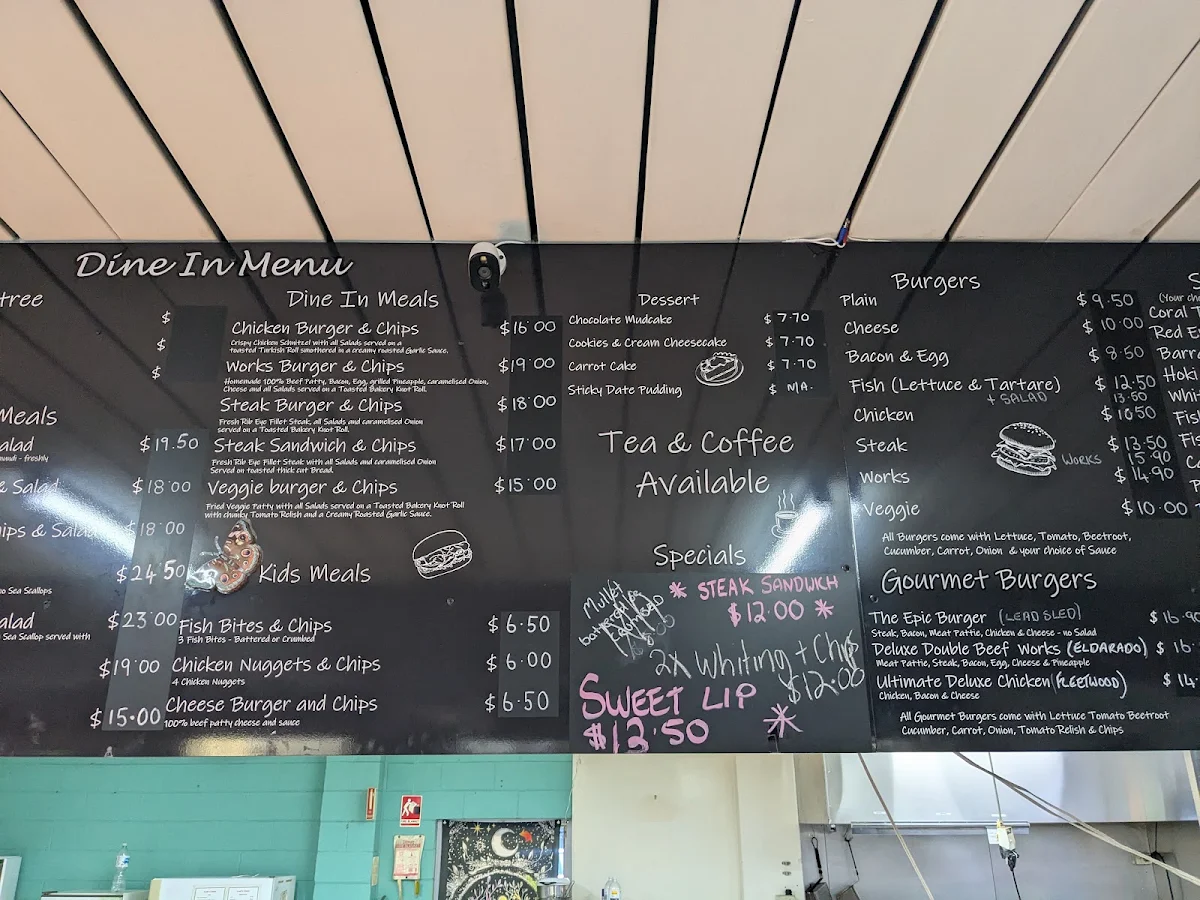 Dine In Menu
tree
$
$
$
Meals
alad $19.50
mundi - freshly
& Salad $18.00
ips & Salad $18.00
$24.50
no Sea Scallops
alad $23.00
Sea Scallop served with
$19.00
$15.00
Dine In Meals
Chicken Burger & Chips $16.00
Crispy Chicken Schnitzel with all Salads served on a
toasted Turkish Roll smothered in a creamy roasted Garlic Sauce.
Works Burger & Chips $19.00
Homemade 100% Beef Patty, Bacon, Egg, grilled Pineapple, caramelised Onion,
Cheese and all Salads served on a Toasted Bakery Knot Roll.
Steak Burger & Chips $18.00
Fresh Rib Eye Fillet Steak, all Salads and caramelised Onion
served on a Toasted Bakery Knot Roll.
Steak Sandwich & Chips $17.00
Fresh Rib Eye Fillet Steak with all Salads and caramelised Onion
Served on toasted thick cut Bread.
Veggie burger & Chips $15.00
Fried Veggie Patty with all Salads served on a Toasted Bakery Knot Roll
with chunky Tomato Relish and a Creamy Roasted Garlic Sauce.
Kids Meals
Fish Bites & Chips $6.50
3 Fish Bites - Battered or Crumbed
Chicken Nuggets & Chips $6.00
4 Chicken Nuggets
Cheese Burger and Chips $6.50
100% beef patty cheese and sauce
Dessert
Chocolate Mudcake $7.70
Cookies & Cream Cheesecake $7.70
Carrot Cake $7.70
Sticky Date Pudding $ N/A.
Tea & Coffee
Available
Specials
* STEAK SANDWICH
$12.00 *
Mullet
2x Whiting + Chips
$12.00
SWEET LIP
$12.50
Burgers
Plain $9.50
Cheese $10.00
Bacon & Egg $8.50
Fish (Lettuce & Tartare) $12.50
+ SALAD 13.50
Chicken $10.50
Steak $13.50
WORKS 15.90
Works $14.90
Veggie $10.00
All Burgers come with Lettuce, Tomato, Beetroot,
Cucumber, Carrot, Onion & your choice of Sauce
Gourmet Burgers
The Epic Burger (LEAD SLED) $16.90
Steak, Bacon, Meat Pattie, Chicken & Cheese - no Salad
Deluxe Double Beef Works (ELDARADO) $16.
Meat Pattie, Steak, Bacon, Egg, Cheese & Pineapple
Ultimate Deluxe Chicken (FLEETWOOD) $14.
Chicken, Bacon & Cheese
All Gourmet Burgers come with Lettuce Tomato Beetroot
Cucumber, Carrot, Onion, Tomato Relish & Chips
S
(Your ch
Coral T
Red E
Barr
Hoki
Whi
Fis
Fi